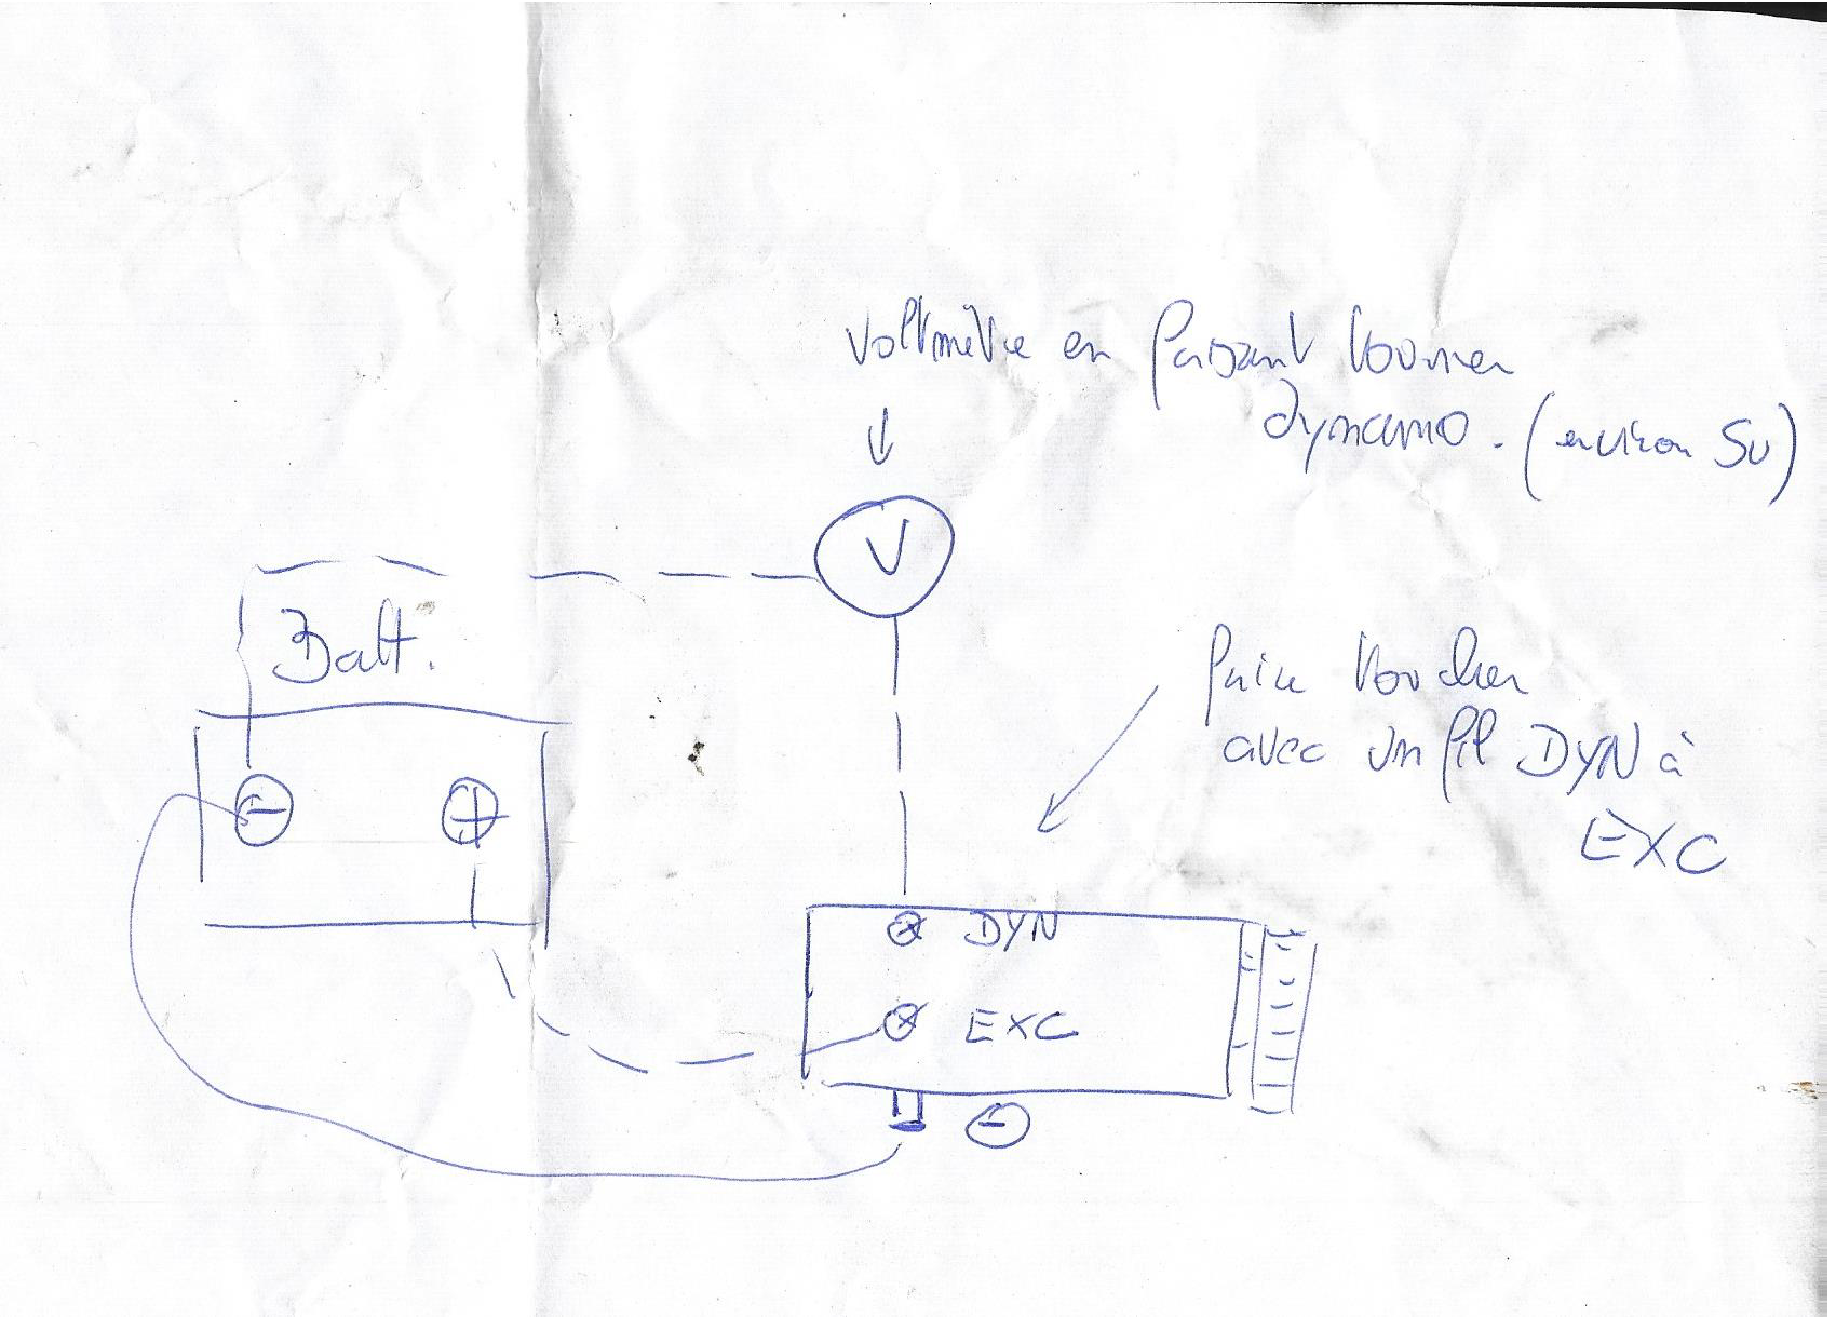 Voltmètre en faisant tourner
dynamo. (environ 5v)
V
Batt.
faire toucher
avec un fil DYN à
EXC
- +
DYN
EXC
-